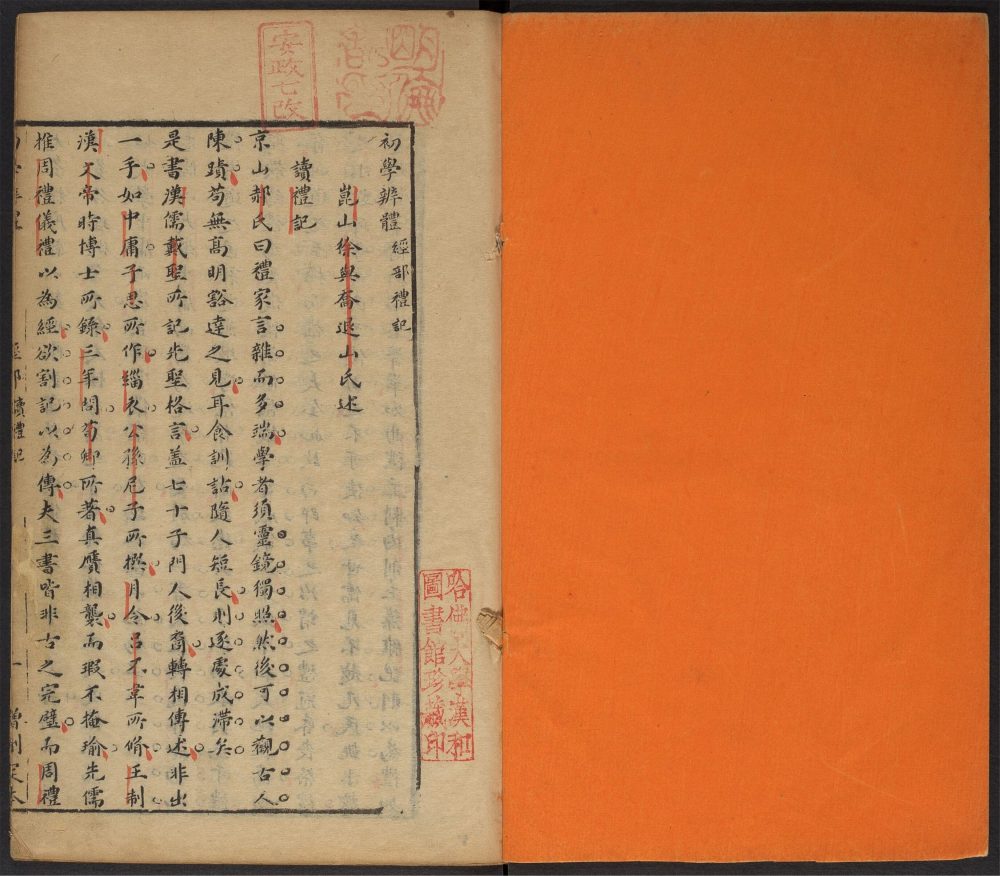 初學辨體 經部禮記
崑山徐與喬退山氏述
讀禮記
京山郝氏曰禮家言雜而多端學者須靈鏡獨照然後可以觀古人
陳蹟苟無高明豁達之見耳食訓詁隨人短長則逐處成滯矣
是書漢儒戴聖所記先聖格言蓋七十子門人後裔轉相傳述非出
一手如中庸子思所作緇衣公孫尼子所撰月令呂不韋所脩王制
漢文帝時博士所錄三年問荀卿所著真贗相襲而瑕不掩瑜先儒
推周禮儀禮以為經欲割記以為傳夫三書皆非古之完璧而周禮
經部 讀禮記 一
安政七改
哈佛大學漢和
圖書館珍藏印